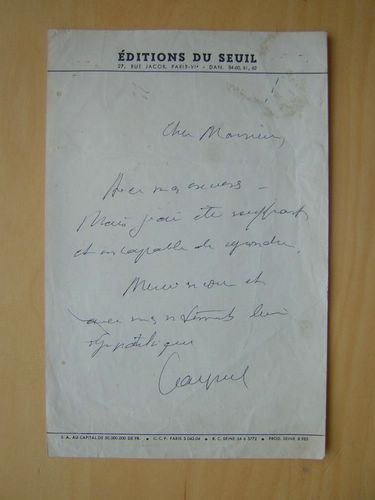 ÉDITIONS DU SEUIL
27, RUE JACOB, PARIS-VIe - DAN. 84-60, 61, 62
Cher Monsieur,
Avec mes excuses -
Mais j'ai été souffrant
et incapable de répondre.
Merci à vous et
avec mes sentiments bien
sympathiques
S. A. AU CAPITAL DE 30.000.000 DE FR. • C. C. P. PARIS 3.042-04 • R. C. SEINE 54 B 5772 • PROD. SEINE 8.985